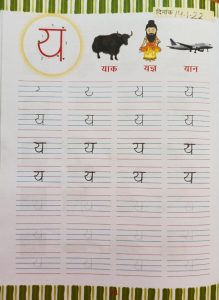 दिनांक 14-1-22
य
याक यज्ञ यान
य य य य
य य य य
य य य य
य य य य